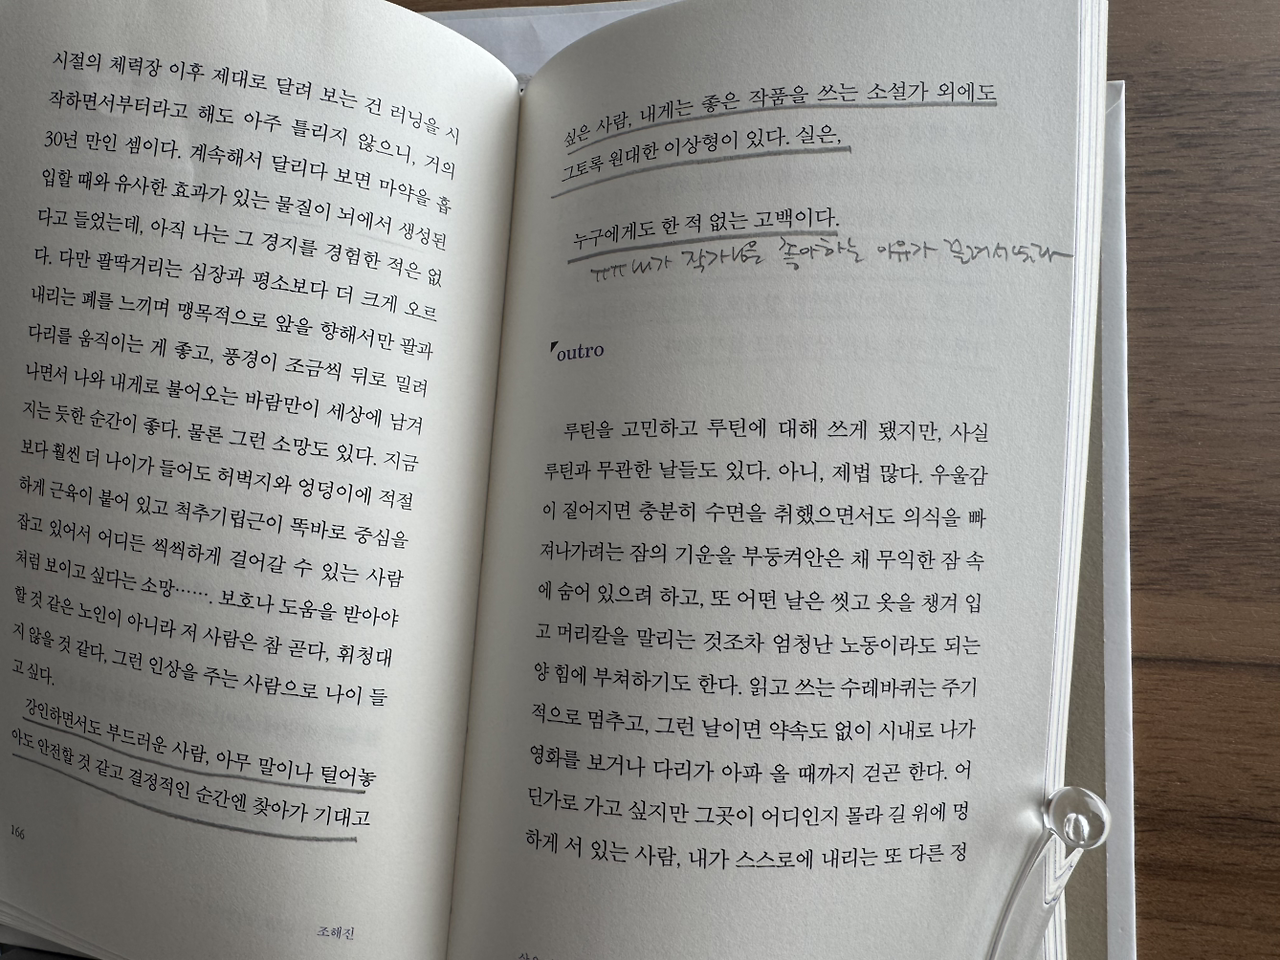 시절의 체력장 이후 제대로 달려 보는 건 러닝을 시
작하면서부터라고 해도 아주 틀리지 않으니, 거의
30년 만인 셈이다. 계속해서 달리다 보면 마약을 흡
입할 때와 유사한 효과가 있는 물질이 뇌에서 생성된
다고 들었는데, 아직 나는 그 경지를 경험한 적은 없
다. 다만 팔딱거리는 심장과 평소보다 더 크게 오르
내리는 폐를 느끼며 맹목적으로 앞을 향해서만 팔과
다리를 움직이는 게 좋고, 풍경이 조금씩 뒤로 밀려
나면서 나와 내게로 불어오는 바람만이 세상에 남겨
지는 듯한 순간이 좋다. 물론 그런 소망도 있다. 지금
보다 훨씬 더 나이가 들어도 허벅지와 엉덩이에 적절
하게 근육이 붙어 있고 척추기립근이 똑바로 중심을
잡고 있어서 어디든 씩씩하게 걸어갈 수 있는 사람
처럼 보이고 싶다는 소망……. 보호나 도움을 받아야
할 것 같은 노인이 아니라 저 사람은 참 곧다, 휘청대
지 않을 것 같다, 그런 인상을 주는 사람으로 나이 들
고 싶다.
강인하면서도 부드러운 사람, 아무 말이나 털어놓
아도 안전할 것 같고 결정적인 순간엔 찾아가 기대고
166
조해진
싶은 사람, 내게는 좋은 작품을 쓰는 소설가 외에도
그토록 원대한 이상형이 있다. 실은,
누구에게도 한 적 없는 고백이다.
ㅠㅠ 내가 작가님을 좋아하는 이유가
outro
루틴을 고민하고 루틴에 대해 쓰게 됐지만, 사실
루틴과 무관한 날들도 있다. 아니, 제법 많다. 우울감
이 짙어지면 충분히 수면을 취했으면서도 의식을 빠
져나가려는 잠의 기운을 부둥켜안은 채 무익한 잠 속
에 숨어 있으려 하고, 또 어떤 날은 씻고 옷을 챙겨 입
고 머리칼을 말리는 것조차 엄청난 노동이라도 되는
양 힘에 부쳐하기도 한다. 읽고 쓰는 수레바퀴는 주기
적으로 멈추고, 그런 날이면 약속도 없이 시내로 나가
영화를 보거나 다리가 아파 올 때까지 걷곤 한다. 어
딘가로 가고 싶지만 그곳이 어디인지 몰라 길 위에 멍
하게 서 있는 사람, 내가 스스로에 내리는 또 다른 정